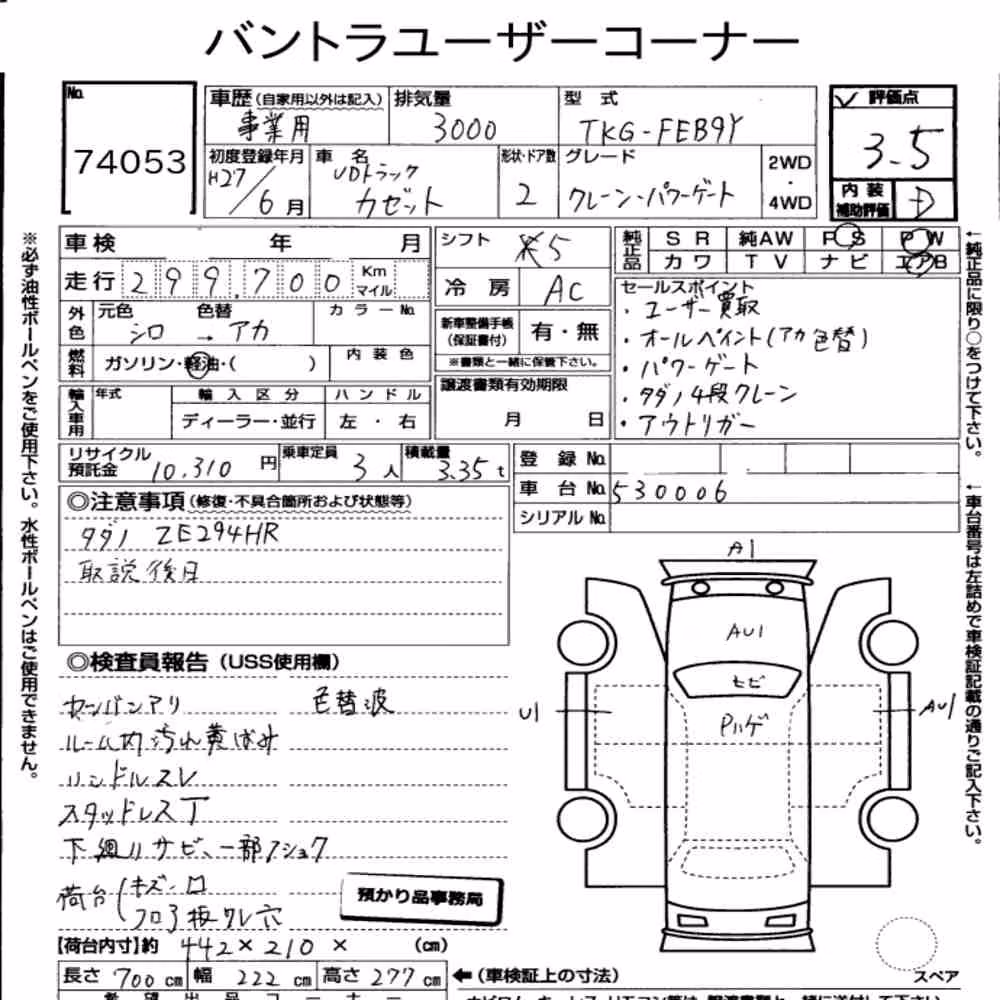 バントラユーザーコーナー
No. 74053
車歴(自家用以外は記入) 事業用
排気量 3000
型式 TKG-FEB9Y
評価点 3.5
初度登録年月 H27/6月
車名 UDトラック カゼット
形状・ドア数 2
グレード クレーン・パワーゲート
2WD・4WD
内装補助評価 D
※必ず油性ボールペンをご使用下さい。水性ボールペンはご使用できません。
車検 年 月
シフト 5
純正品 SR 純AW PS PW
カワ TV ナビ エアB
走行 299,700 Km マイル
冷房 AC
セールスポイント
・ユーザー買取
・オールペイント(アカ色替)
・パワーゲート
・タダノ4段クレーン
・アウトリガー
外色 元色 シロ → 色替 アカ カラーNo.
新車整備手帳(保証書付) 有・無
※書類と一緒に保管下さい。
燃料 ガソリン・軽油・( ) 内装色
輸入車用 年式 輸入区分 ハンドル
ディーラー・並行 左・右
譲渡書類有効期限
月 日
←純正品に限り○をつけて下さい。
リサイクル預託金 10,310円
乗車定員 3人
積載量 3.35t
登録No.
車台No. 530006
シリアルNo.
←車台番号は左詰めで車検証記載の通りご記入下さい。
◎注意事項(修復・不具合箇所および状態等)
タダノ ZE294HR
取説後日
◎検査員報告(USS使用欄)
カンバンアリ 色替波
ルーム内汚れ黄ばみ
ハンドルスレ
スタッドレスT
下廻りサビ、一部フショク
荷台(キズ・凹
フロア板ワレ穴
預かり品事務局
A1
AU1
ヒビ
Pハゲ
U1
AU1
スペア
【荷台内寸】約 442×210× (cm)
長さ 700cm 幅 222cm 高さ 277cm
←(車検証上の寸法)
希望出品コーナー